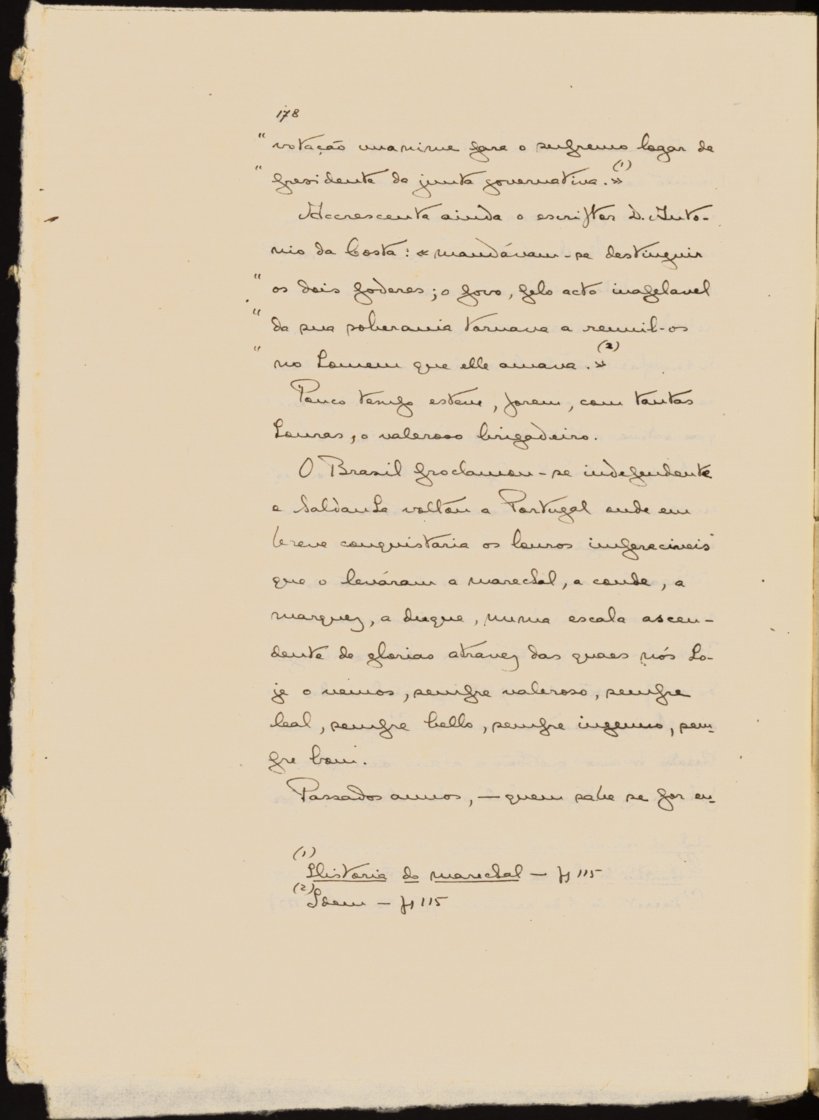 178
" votação unanime para o supremo logar de
" presidente da junta governativa.» (1)
Accrescenta ainda o escriptor D. Anto-
nio da Costa: « mandávam-se destinguir
" os dois poderes; o povo, pelo acto inapelavel
" da sua soberania tornava a reunil-os
" no homem que elle amava.» (2)
Pouco tempo esteve, porem, com tantas
honras, o valeroso brigadeiro.
O Brasil proclamou-se independente
e Saldanha voltou a Portugal onde em
breve conquistaria os louros imperecíveis
que o leváram a marechal, a conde, a
marquez, a duque, numa escala ascen-
dente de glorias atravez das quaes nós ho-
je o vemos, sempre valeroso, sempre
leal, sempre bello, sempre ingenuo, sem-
pre bom.
Passados annos, — quem sabe se por en-
(1) Historia do marechal — pg 115
(2) Idem — pg 115